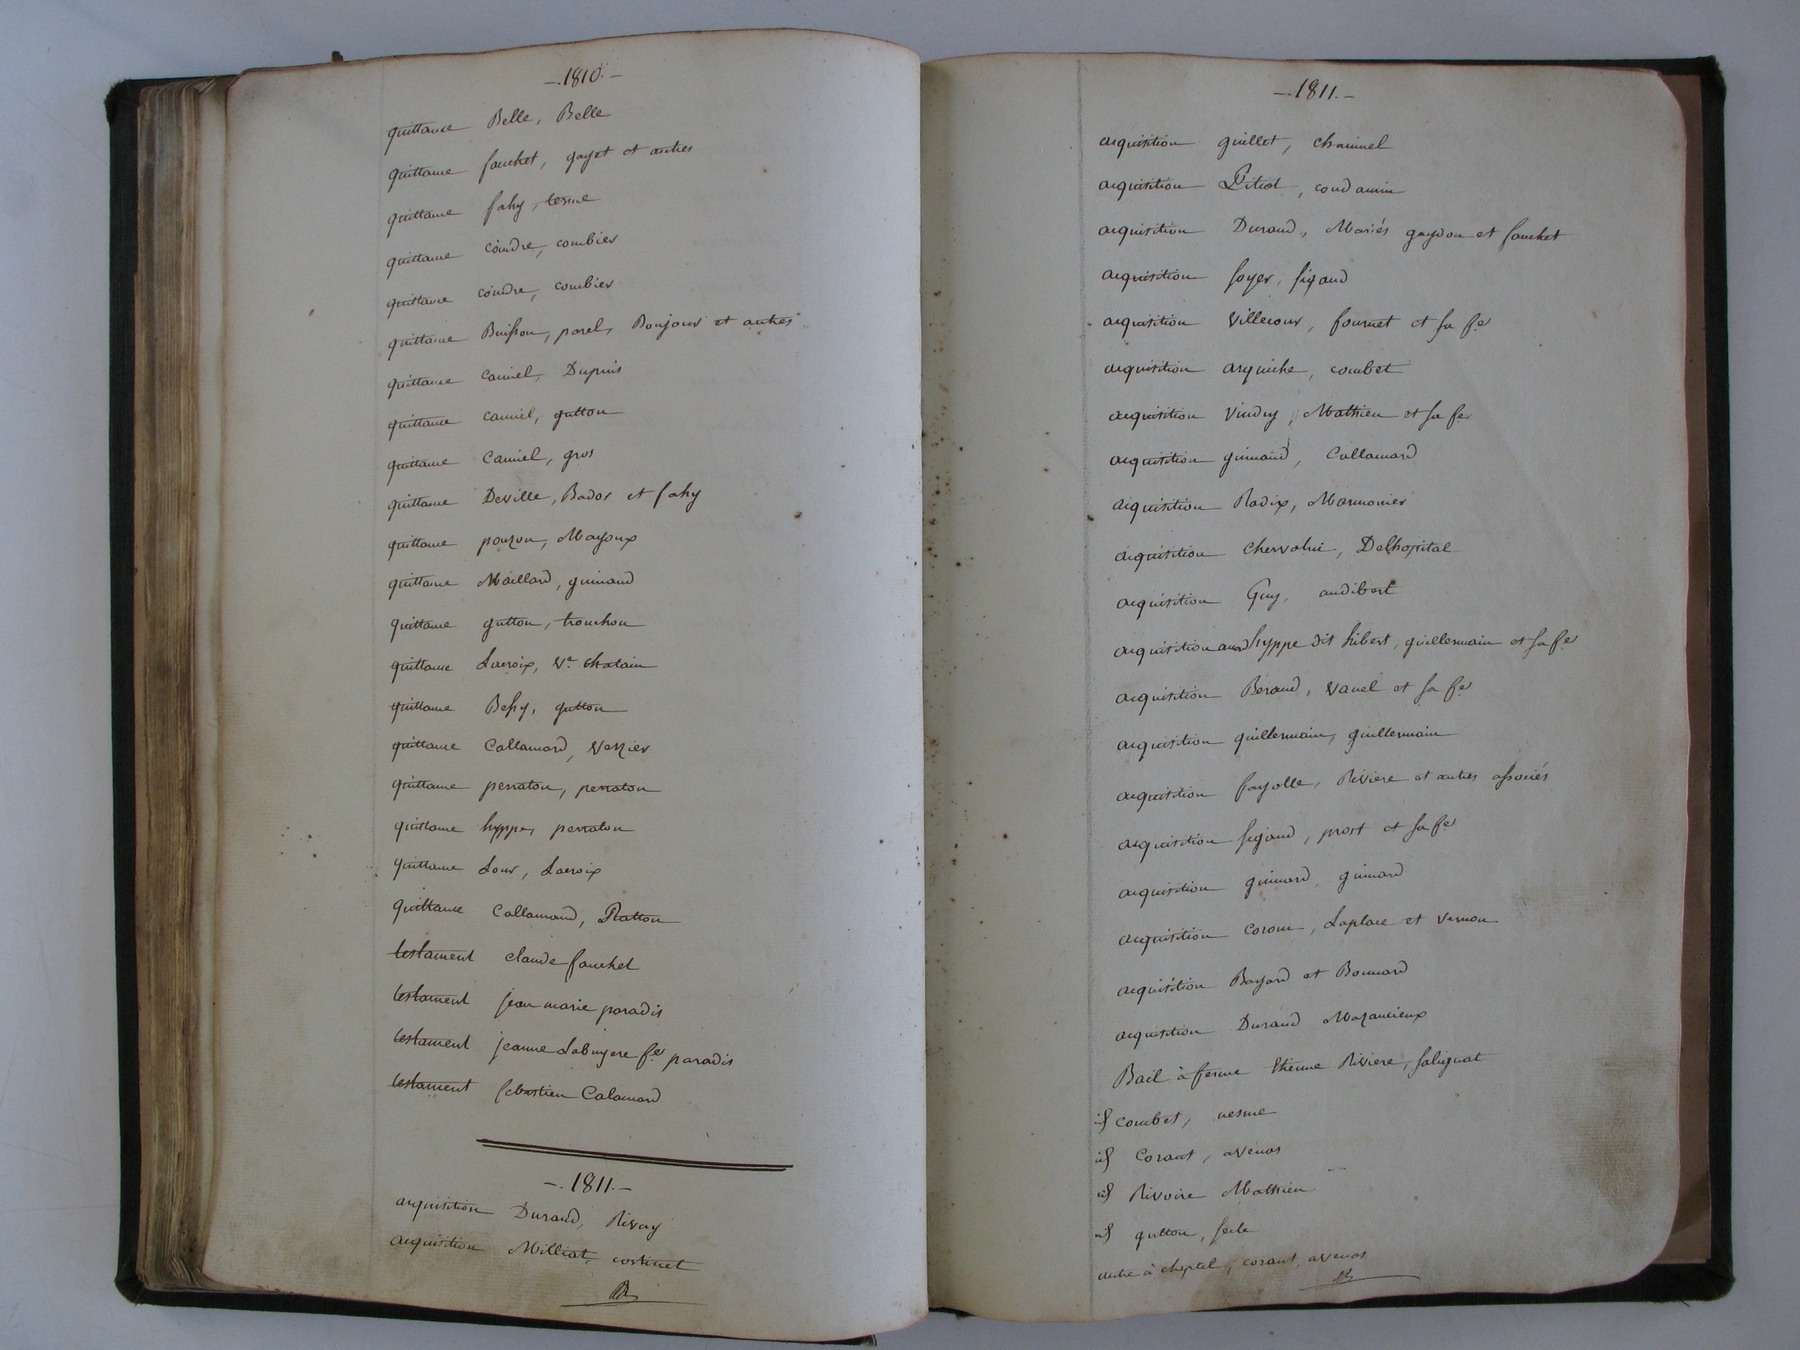 —.1810.—
quittance Belle, Belle
quittance fauchet, gayet et autres
quittance fahy, terme
quittance coindre, combier
quittance coindre, combier
quittance Buisson, parel, Bonjour et autres
quittance Caniel, Dupuis
quittance caniel, gutton
quittance Caniel, gros
quittance Deville, Bador et fahy
quittance pouzon, Mayoux
quittance Maillard, guinand
quittance gutton, trouchon
quittance Lacroix, Ve. chatain
quittance Bessy, gutton
quittance Callamard, Verzier
quittance perraton, perraton
quittance hyppe, perraton
quittance Lour, Lacroix
quittance Callamard, Ratton
testament claude fauchet
testament jean marie paradis
testament jeanne Labruyere fe. paradis
testament sebastien Calamard
—.1811.—
acquisition Durand, Rivay
acquisition Milliat, costinet
—.1811.—
acquisition guillot, chaninel
acquisition Pitiot, condamin
acquisition Durand, Mariés gaydon et fauchet
acquisition soyer, sigaud
acquisition Villecour, fournet et sa fe.
acquisition arquiche, combet
acquisition Vindry, Mathieu et sa fe.
acquisition guinand, Callamard
acquisition Radix, Marmonier
acquisition chervolin, Delhopital
acquisition Guy, audibert
acquisition hyppe dit hibert, guillermain et sa fe.
acquisition Beraud, Vanel et sa fe.
acquisition guillermain, guillermain
acquisition fayolle, Riviere et autres associés
acquisition sigaud, prost et sa fe.
acquisition guinard, guinard
acquisition coron, Laplace et Vernon
acquisition Bayard et Bonnard
acquisition Durand Mazancieux
Bail à ferme Etienne Riviere, salignat
id combet, nesme
id Corant, avenas
id Rivoire Mathieu
id gutton,
autre à cheptel, corant, avenas